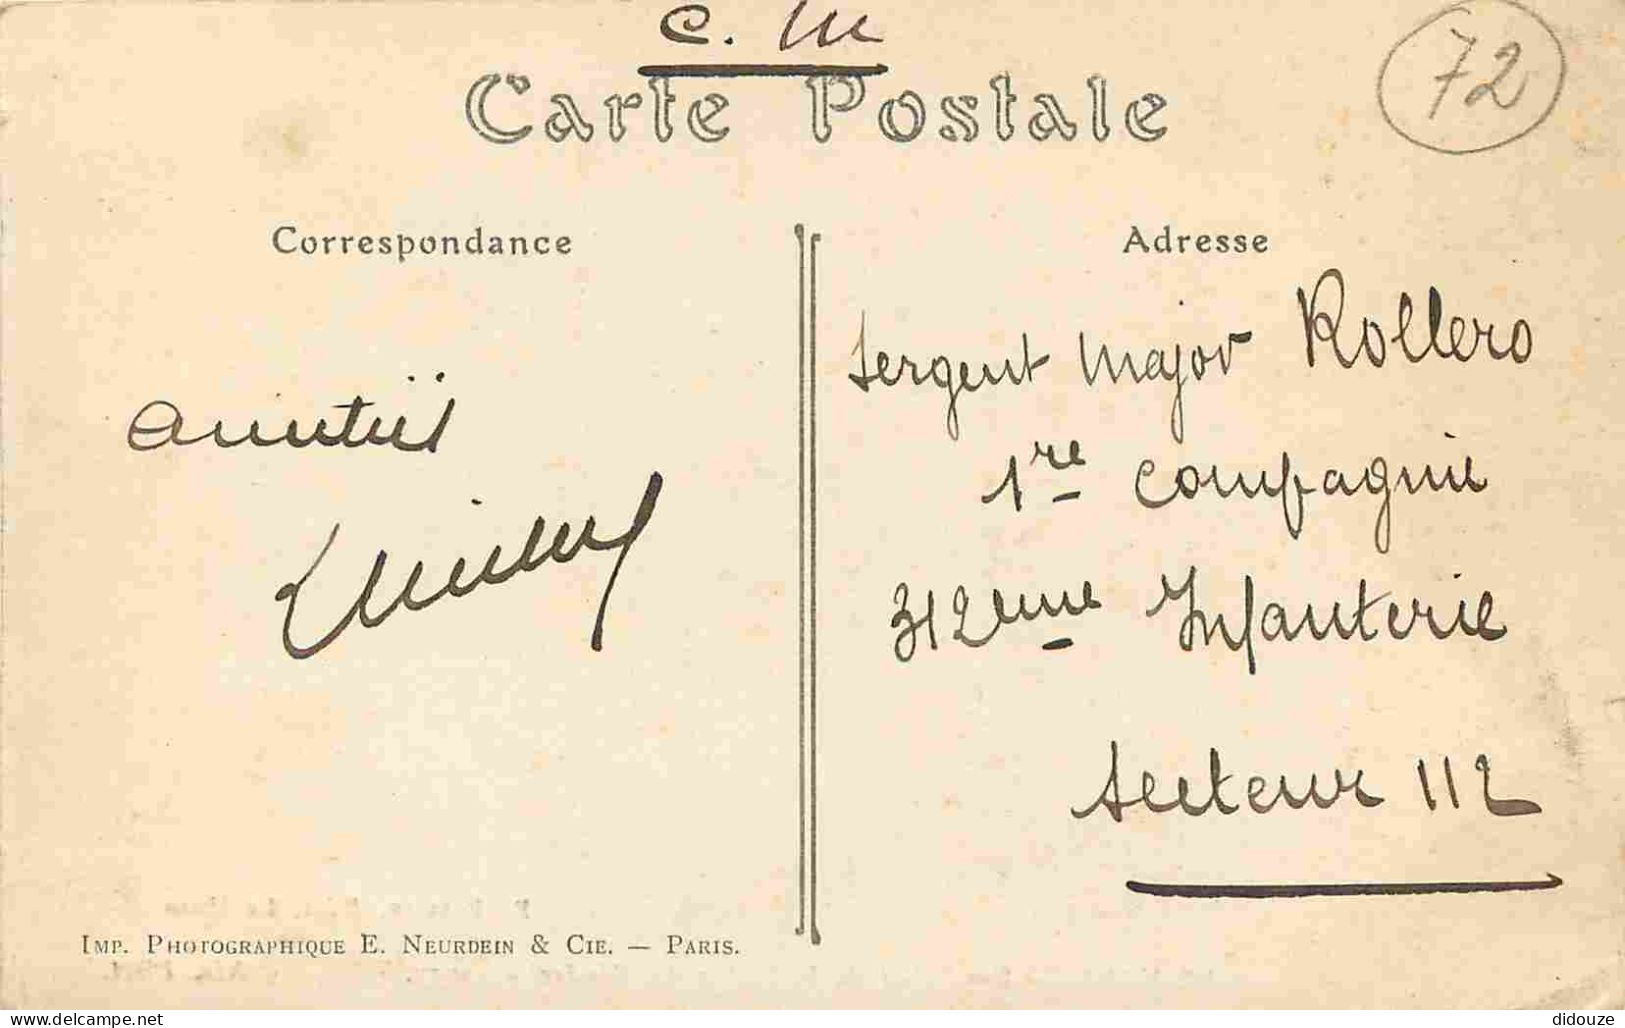 C. M
72
Carte Postale
Correspondance
Adresse
Sergent Major Rollero
Amitiés
1re Compagnie
312eme Infanterie
Secteur 112
IMP. PHOTOGRAPHIQUE E. NEURDEIN & CIE. — PARIS.
delcampe.net/fr
didouze